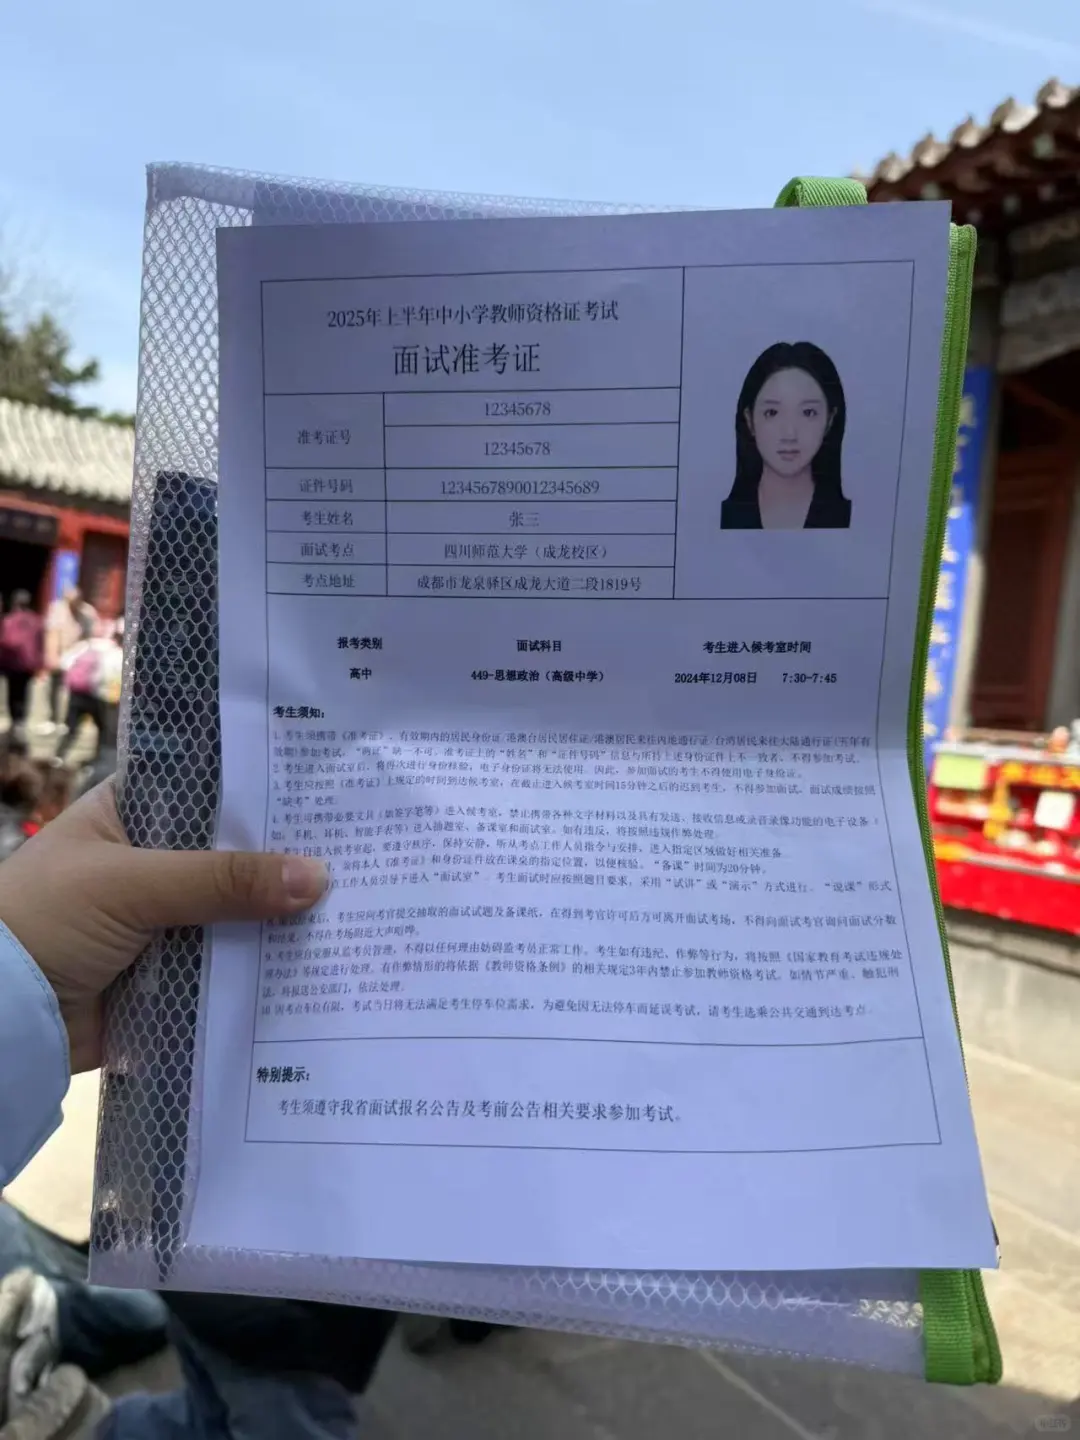 2025年上半年中小学教师资格证考试
面试准考证
准考证号
12345678
12345678
证件号码
1234567890012345689
考生姓名
张三
面试考点
四川师范大学（成龙校区）
考点地址
成都市龙泉驿区成龙大道二段1819号
报考类别 面试科目 考生进入候考室时间
高中 449-思想政治（高级中学） 2024年12月08日 7:30-7:45
考生须知：
1.考生须携带《准考证》、有效期内的居民身份证/港澳台居民居住证/港澳居民来往内地通行证/台湾居民来往大陆通行证(五年有
效期)参加考试，“两证”缺一不可。准考证上的“姓名”和“证件号码”信息与所持上述身份证件上不一致者，不得参加考试。
2.考生进入面试室后，将再次进行身份核验，电子身份证将无法使用。因此，参加面试的考生不得使用电子身份证。
3.考生应按照《准考证》上规定的时间到达候考室，在截止进入候考室时间15分钟之后的迟到考生，不得参加面试，面试成绩按照
“缺考”处理。
4.考生可携带必要文具（如签字笔等）进入候考室，禁止携带各种文字材料以及具有发送、接收信息或录音录像功能的电子设备（
如，手机、耳机、智能手表等）进入抽题室、备课室和面试室。如有违反，将按照违规作弊处理。
考生自进入候考室起，要遵守秩序，保持安静，听从考点工作人员指令与安排，进入指定区域做好相关准备
须将本人《准考证》和身份证件放在课桌的指定位置，以便核验。“备课”时间为20分钟。
点工作人员引导下进入“面试室”。考生面试时应按照题目要求，采用“试讲”或“演示”方式进行。“说课”形式
束后，考生应向考官提交抽取的面试试题及备课纸，在得到考官许可后方可离开面试考场，不得向面试考官询问面试分数
和结果，不得在考场附近大声喧哗。
9.考生应自觉服从监考员管理，不得以任何理由妨碍监考员正常工作。考生如有违纪、作弊等行为，将按照《国家教育考试违规处
理办法》等规定进行处理。有作弊情形的将依据《教师资格条例》的相关规定3年内禁止参加教师资格考试。如情节严重、触犯刑
法，将报送公安部门，依法处理。
10.因考点车位有限，考试当日将无法满足考生停车位需求，为避免因无法停车而延误考试，请考生选乘公共交通到达考点。
特别提示：
考生须遵守我省面试报名公告及考前公告相关要求参加考试。
小红书